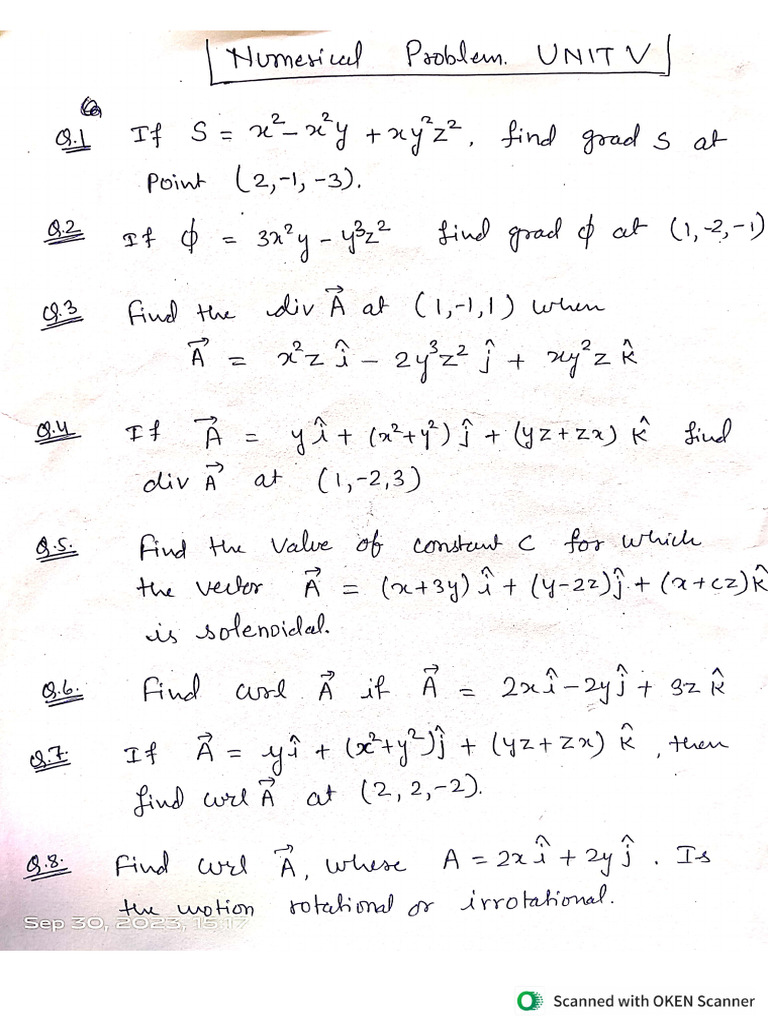 Numerical Problem. UNIT V
Q.1 If S = x² - x²y + xy²z², find grad S at
Point (2,-1,-3).
Q.2 If ϕ = 3x²y - y³z² find grad ϕ at (1,-2,-1)
Q.3 Find the div A⃗ at (1,-1,1) when
A⃗ = x²z î - 2y³z² ĵ + xy²z k̂
Q.4 If A⃗ = yî + (x²+y²) ĵ + (yz+zx) k̂ find
div A⃗ at (1,-2,3)
Q.5. Find the value of constant C for which
the vector A⃗ = (x+3y) î + (y-2z) ĵ + (x+cz) k̂
is solenoidal.
Q.6. Find curl A⃗ if A⃗ = 2xî - 2yĵ + 3z k̂
Q.7. If A⃗ = yî + (x²+y²)ĵ + (yz+zx) k̂, then
find curl A⃗ at (2,2,-2).
Q.8. Find curl A⃗, whose A = 2xî + 2yĵ. Is
the motion rotational or irrotational.
Sep 30, 2023, 15:17
Scanned with OKEN Scanner